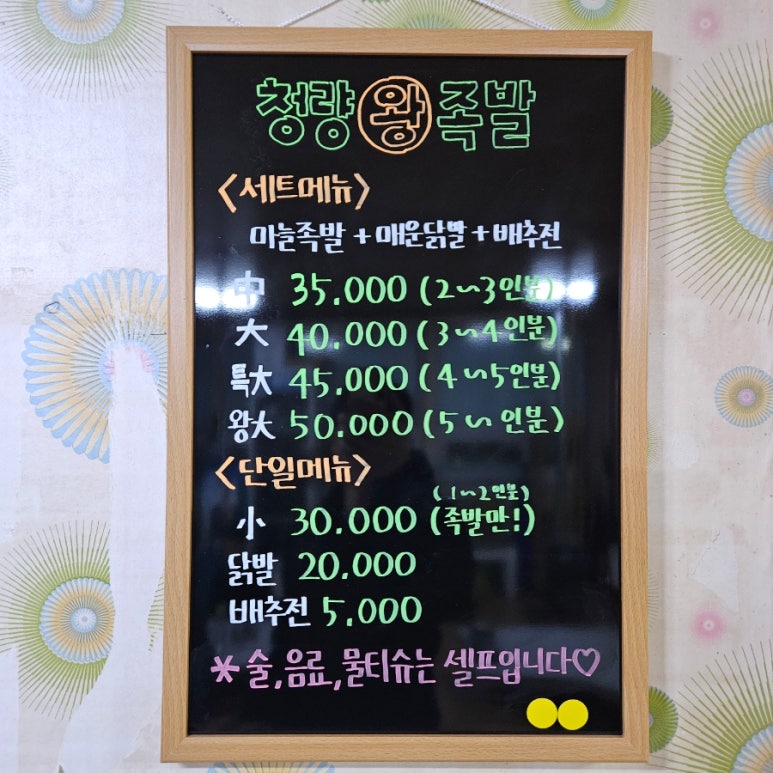 청량왕족발
<세트메뉴>
마늘족발 + 매운닭발 + 배추전
中 35.000 (2~3인분)
大 40.000 (3~4인분)
특大 45.000 (4~5인분)
왕大 50.000 (5~ 인분)
<단일메뉴>
(1~2인분)
小 30.000 (족발만!)
닭발 20.000
배추전 5.000
* 술,음료,물티슈는 셀프입니다♡